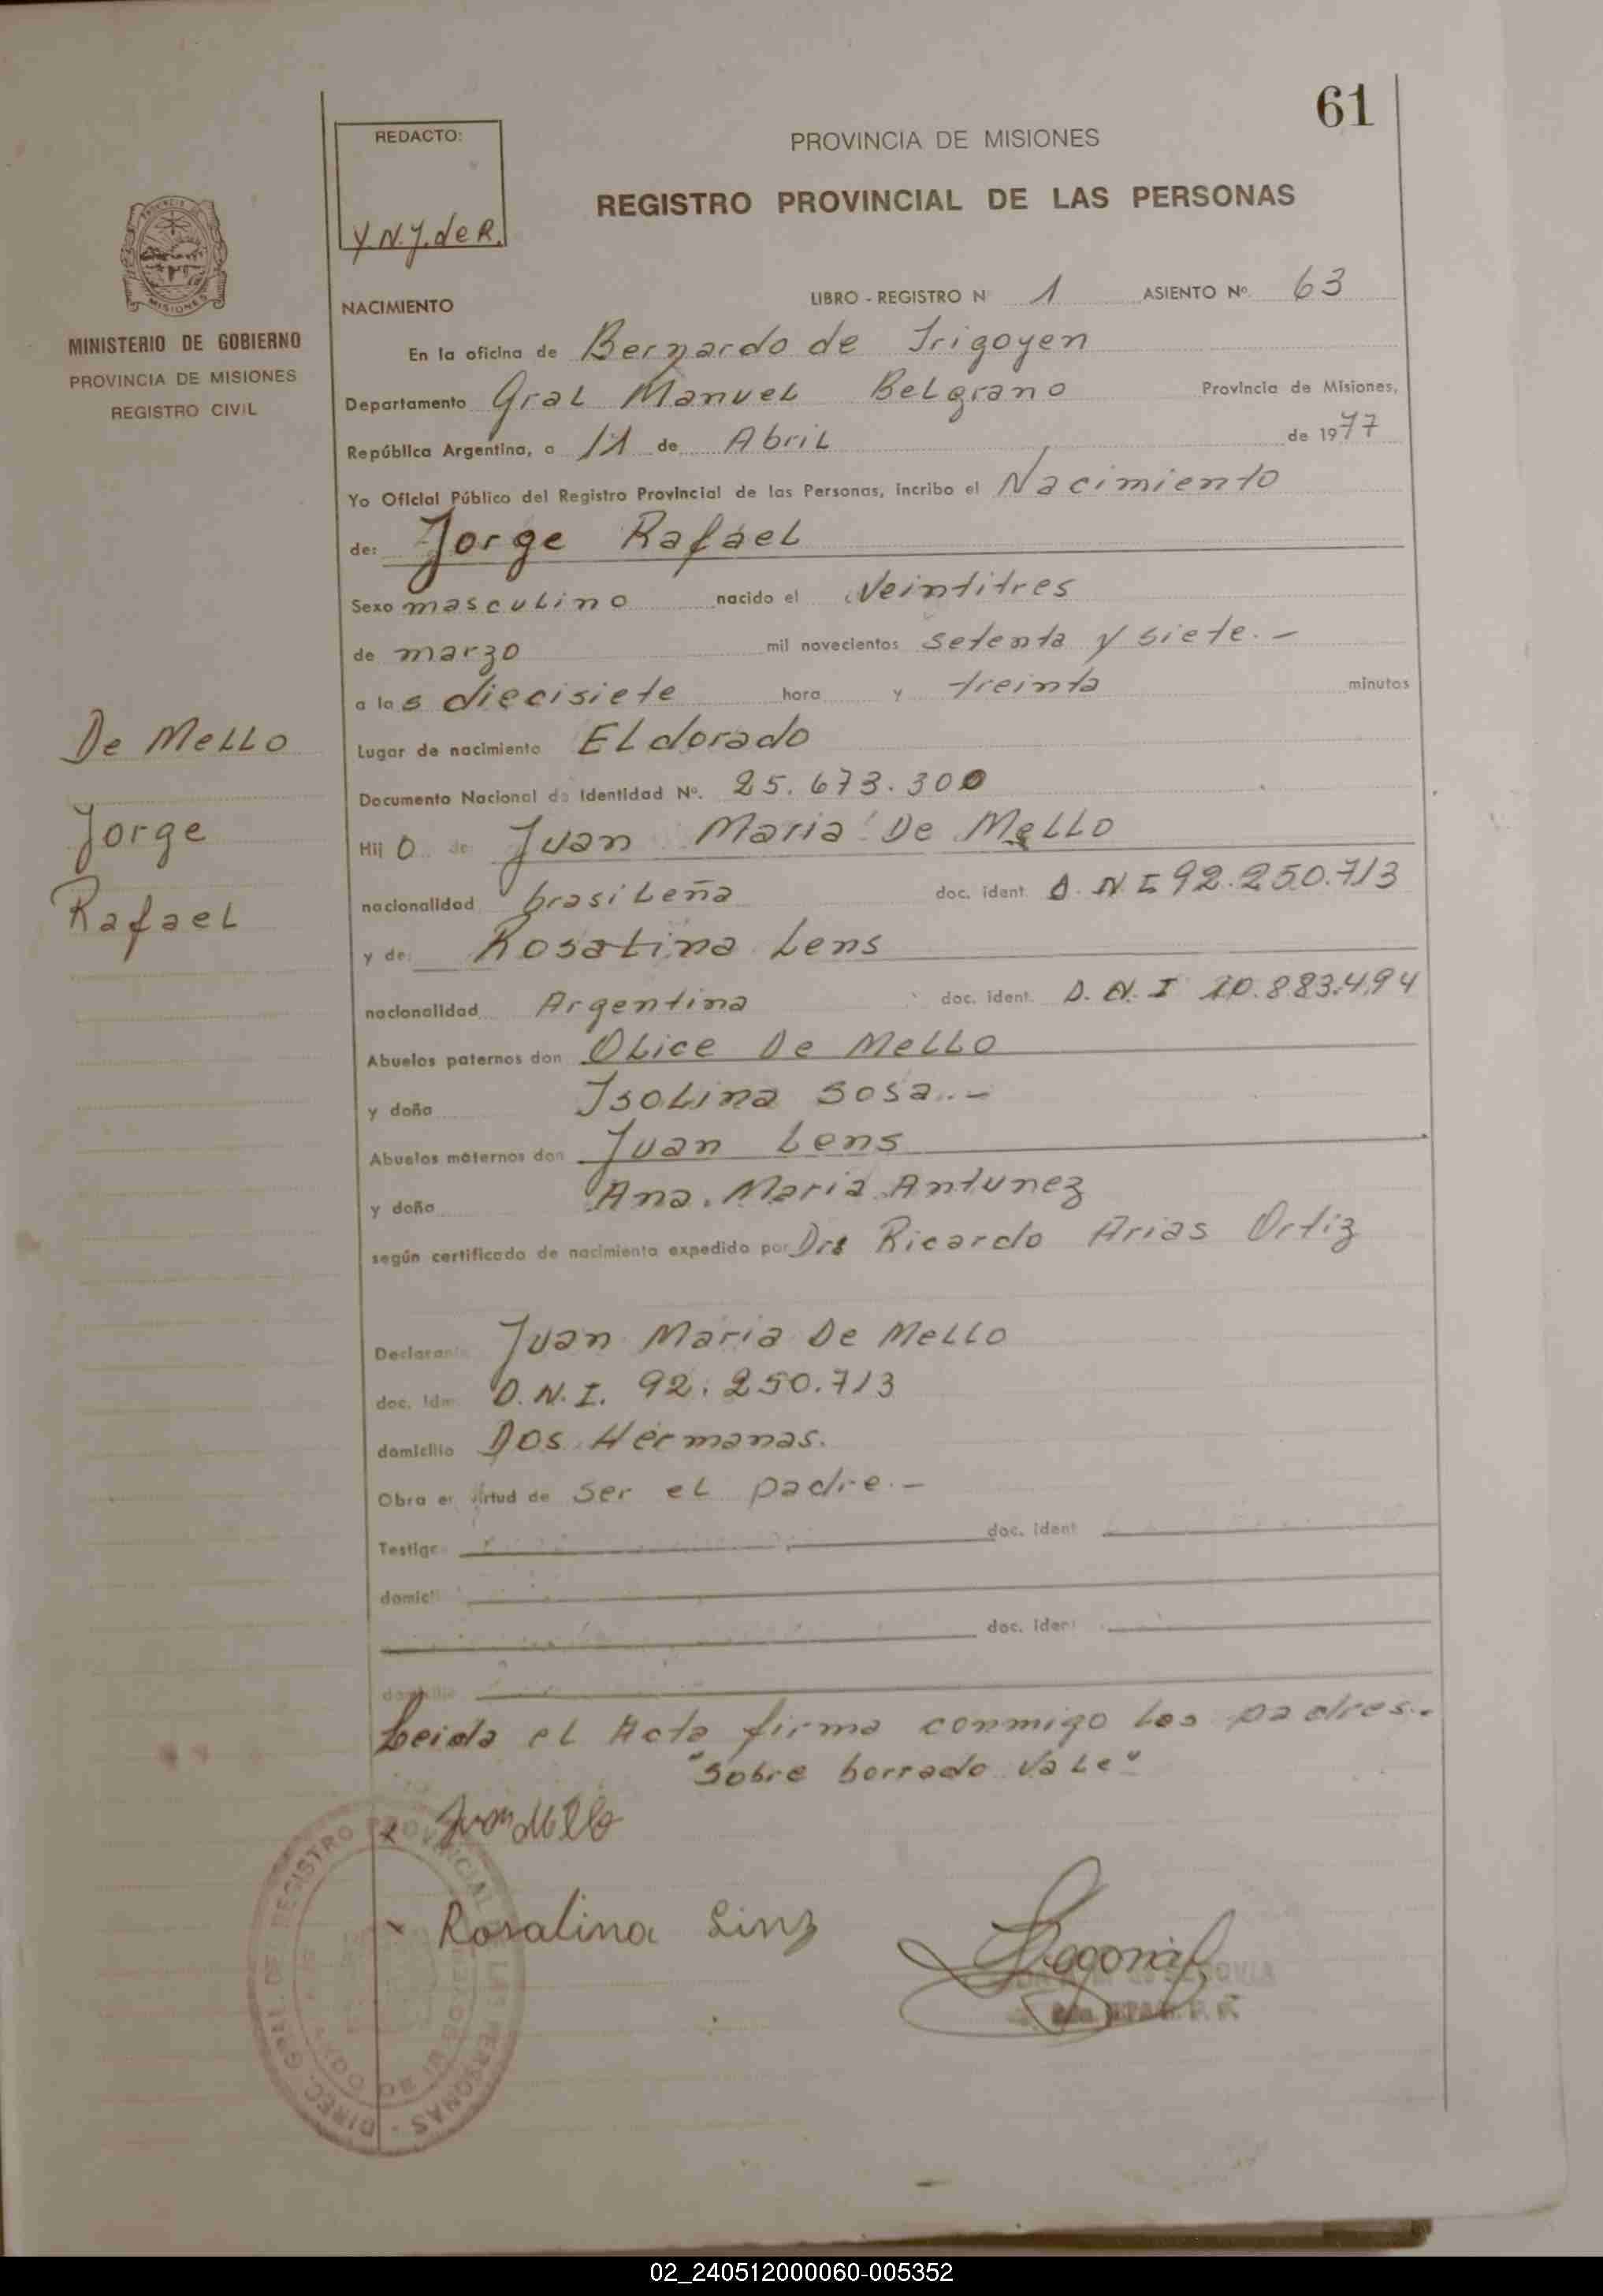 61
REDACTO:
Y.N.Y. de R.
PROVINCIA DE MISIONES
REGISTRO PROVINCIAL DE LAS PERSONAS
MISIONES
MINISTERIO DE GOBIERNO
PROVINCIA DE MISIONES
REGISTRO CIVIL
NACIMIENTO LIBRO - REGISTRO Nº 1 ASIENTO Nº. 63
En la oficina de Bernardo de Irigoyen
Departamento Gral Manuel Belgrano Provincia de Misiones,
República Argentina, a 11 de Abril de 1977
Yo Oficial Público del Registro Provincial de las Personas, incribo el Nacimiento
de: Jorge Rafael
Sexo masculino nacido el Veintitres
de marzo mil novecientos setenta y siete.-
a las diecisiete hora y treinta minutos
Lugar de nacimiento Eldorado
Documento Nacional de Identidad Nº. 25.673.300
Hij o de Juan Maria De Mello
nacionalidad brasileña doc. ident. D.N.I 92.250.713
y de: Rosalina Lens
nacionalidad Argentina doc. ident. D.N.I 10.883.494
Abuelos paternos don Olice De Mello
y doña Isolina Sosa.-
Abuelos maternos don Juan Lens
y doña Ana Maria Antunez
según certificado de nacimiento expedido por Dr Ricardo Arias Ortiz
De Mello
Jorge
Rafael
Declarante Juan Maria De Mello
doc. Iden D.N.I. 92.250.713
domicilio Dos Hermanas.
Obra en virtud de ser el padre.-
Testigo doc. ident
domicil
doc. ident
domicilio
Leida el Acta firma conmigo los padres.-
"Sobre borrado vale"
x Juan Mello
x Rosalina Linz
Segovia
DIREC. GRAL. DEL REGISTRO PROVINCIAL DE LAS PERSONAS
02_240512000060-005352